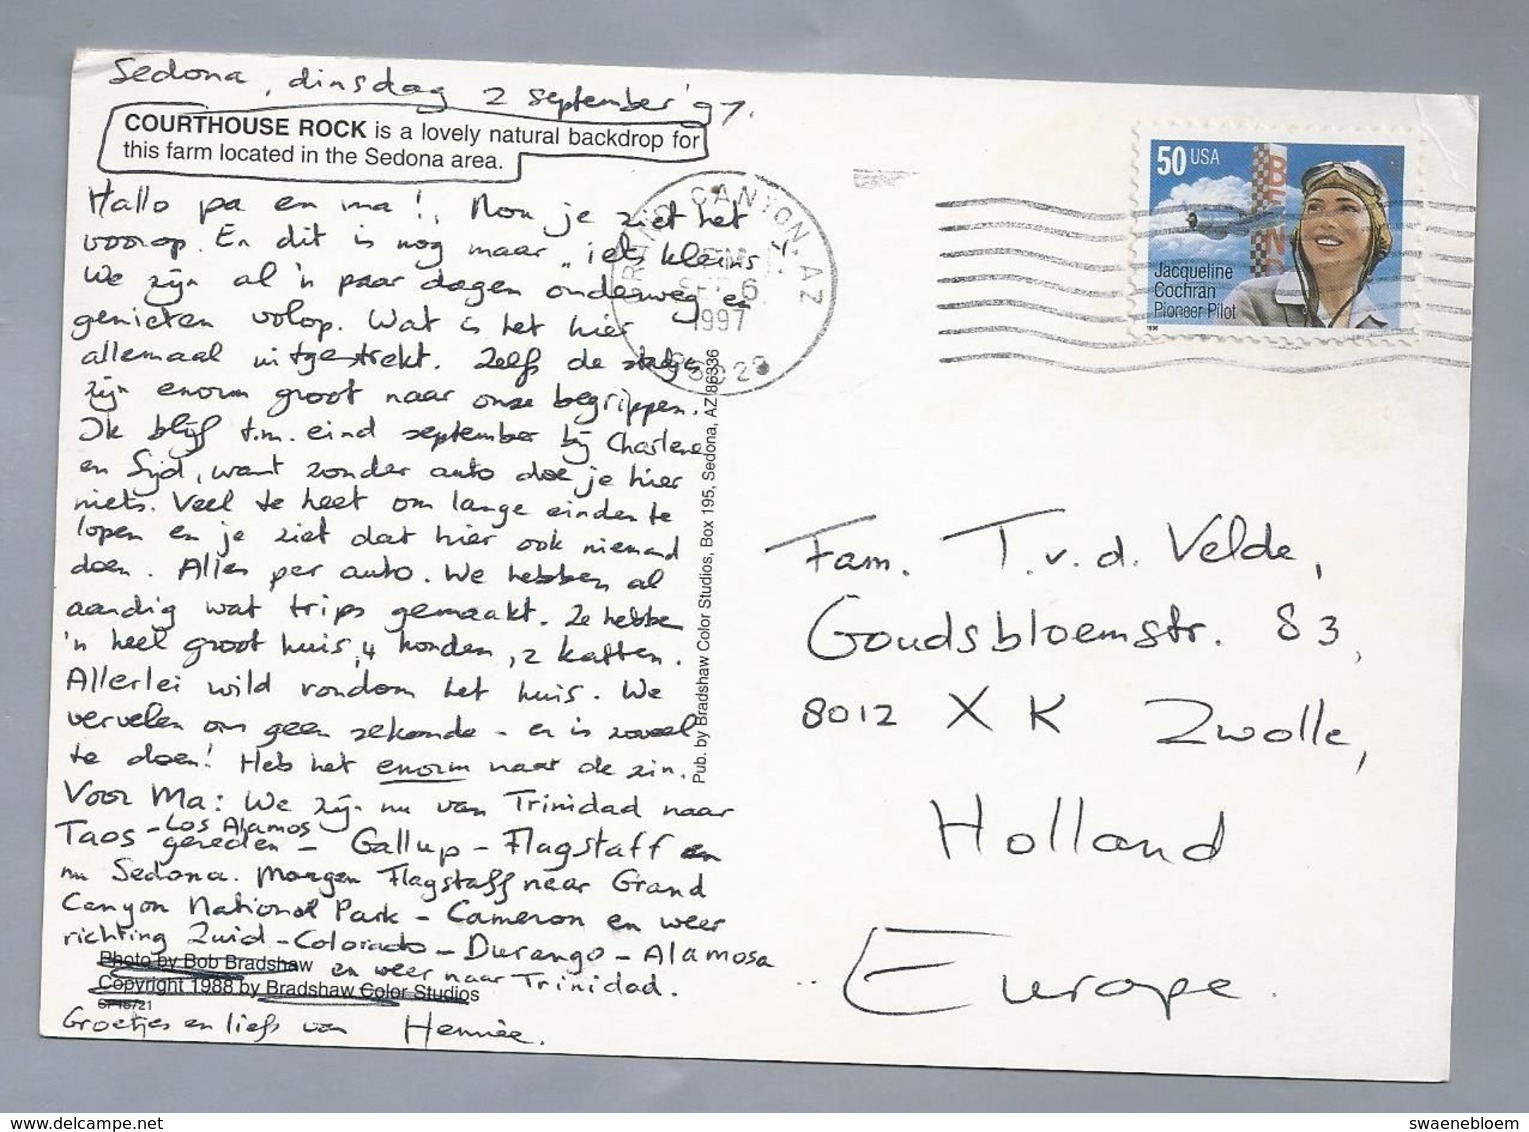 Sedona, dinsdag 2 september '97.
COURTHOUSE ROCK is a lovely natural backdrop for
this farm located in the Sedona area.
Hallo pa en ma!, Nou je ziet het
voorop. En dit is nog maar "iets kleins"!
We zijn al 'n paar dagen onderweg en
genieten volop. Wat is het hier
allemaal uitgestrekt. Zelfs de
zijn enorm groot naar onze begrippen.
Ik blijf t.m. eind september bij Charlene
en Syd, want zonder auto doe je hier
niets. Veel te heet om lange einden te
lopen en je ziet dat hier ook niemand
doen. Alles per auto. We hebben al
aandig wat trips gemaakt. Ze hebben
'n heel groot huis, 4 honden, 2 katten.
Allerlei wild rondom het huis. We
vervelen ons geen sekonde - er is zoveel
te doen! Heb het enorm naar de zin.
Voor Ma: We zijn nu van Trinidad naar
Taos - Los Alamos
gereden - Gallup - Flagstaff en
nu Sedona. Morgen Flagstaff naar Grand
Canyon National Park - Cameron en weer
richting Zuid-Colorado - Durango - Alamosa
en weer naar Trinidad.
Photo by Bob Bradshaw
Copyright 1988 by Bradshaw Color Studios
Groetjes en liefs van Hennie.
Pub. by Bradshaw Color Studios, Box 195, Sedona, AZ 86336
GRAND CANYON, AZ
PM
SEP 6
1997
86023
50 USA
BEND
Jacqueline
Cochran
Pioneer Pilot
1996
Fam. T. v. d. Velde,
Goudsbloemstr. 83,
8012 XK Zwolle,
Holland
Europe.
www.delcampe.net
swaenebloem